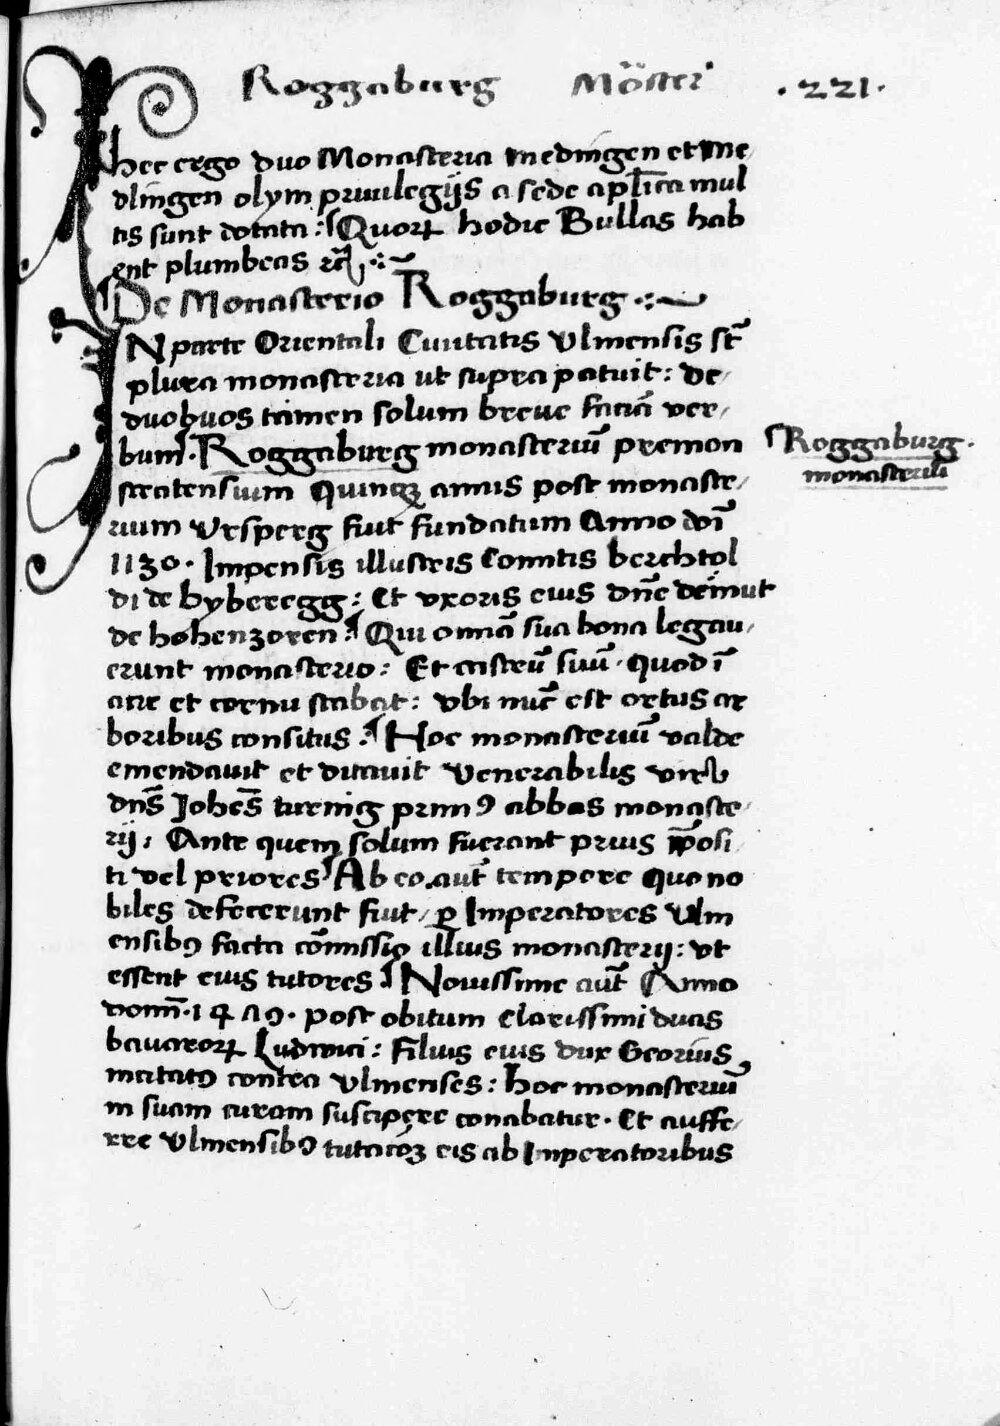 Roggaburg Möster .221.
hec ergo duo Monasteria medingen et me/
dlingen olym priuilegijs a sede aplica mul
tis sunt dotata: Quorꝝ hodie Bullas hab
ent plumbeas rc̃
De Monasterio Roggaburg
IN parte Orientali Ciuitatis Vlmensis st̃
plura monasteria ut supra patuit: de/
duobuos tamen solum breue faciā ver/
bum. Roggaburg monasteriū premon
Roggaburg.
monasteriū
stratensium Quinqꝫ annis post monaste/
rium Vrsperg fuit fundatum Anno doī
1130. Impensis illustris Comitis berchtol
di de byberegg: Et vxoris eius dnē demut
de hohenzoren. Qui omnā sua bona legau/
erunt monasterio: Et castrū suū. quod ī
arce et cornu stabat: vbi nūc est ortus ar
boribus consitus: Hoc monasteriū valde
emendauit et ditauit Venerabilis vir
dns̄ Johēs turnig primꝰ abbas monaste/
rij: Ante quem solum fuerant prius p̄posi/
ti vel priores Ab eo aut̄ tempore quo no
biles defecerunt fuit/ ꝑ Imperatores Vlm
ensibꝰ facta cōmissio illius monasterij: vt
essent eius tutores Nouissime aut̄ Anno
domī. 1479. post obitum Clarissimi ducis
bauarorꝝ Ludwici: filius eius dux Georius
incitatꝰ contra Vlmenses: Hoc monasteriū
in suam curam suscipere conabatur. Et auffe/
rre Vlmensibꝰ tutacōꝫ eis ab Imperatoribus